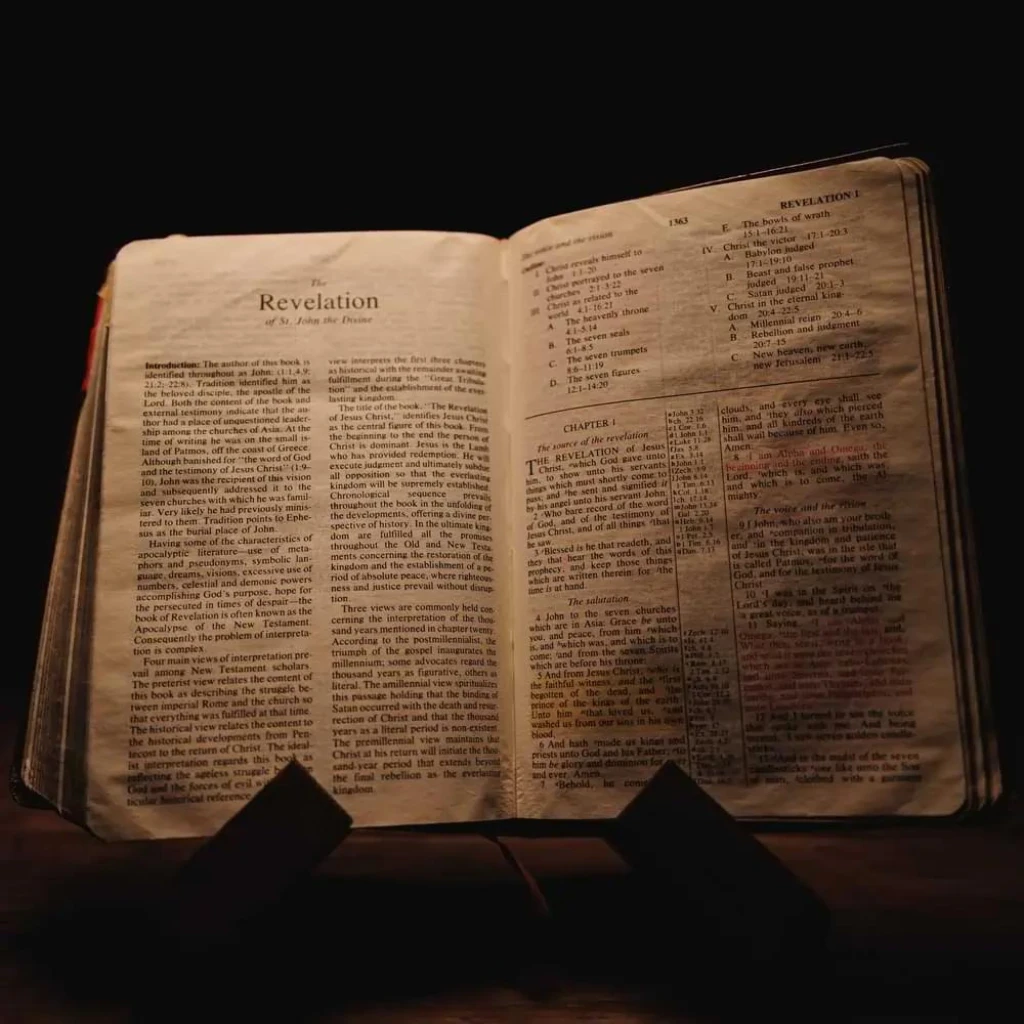 The
Revelation
of St. John the Divine
Introduction: The author of this book is
identified throughout as John: (1:1,4,9;
21:2; 22:8). Tradition identified him as
the beloved disciple, the apostle of the
Lord. Both the content of the book and
external testimony indicate that the au-
thor had a place of unquestioned leader-
ship among the churches of Asia. At the
time of writing he was on the small is-
land of Patmos, off the coast of Greece.
Although banished for "the word of God
and the testimony of Jesus Christ" (1:9-
10), John was the recipient of this vision
and subsequently addressed it to the
seven churches with which he was famil-
iar. Very likely he had previously minis-
tered to them. Tradition points to Ephe-
sus as the burial place of John.
Having some of the characteristics of
apocalyptic literature—use of meta-
phors and pseudonyms, symbolic lan-
guage, dreams, visions, excessive use of
numbers, celestial and demonic powers
accomplishing God's purpose, hope for
the persecuted in times of despair—the
book of Revelation is often known as the
Apocalypse of the New Testament.
Consequently the problem of interpreta-
tion is complex.
Four main views of interpretation pre-
vail among New Testament scholars.
The preterist view relates the content of
this book as describing the struggle be-
tween imperial Rome and the church so
that everything was fulfilled at that time.
The historical view relates the content to
the historical developments from Pen-
tecost to the return of Christ. The ideal-
ist interpretation regards this book as
reflecting the ageless struggle
God and the forces of evil
ticular historical reference
view interprets the first three chapters
as historical with the remainder awaiting
fulfillment during the "Great Tribula-
tion" and the establishment of the ever-
lasting kingdom.
The title of the book, "The Revelation
of Jesus Christ," identifies Jesus Christ
as the central figure of this book. From
the beginning to the end the person of
Christ is dominant. Jesus is the Lamb
who has provided redemption. He will
execute judgment and ultimately subdue
all opposition so that the everlasting
kingdom will be supremely established.
Chronological sequence prevails
throughout the book in the unfolding of
the developments, offering a divine per-
spective of history. In the ultimate king-
dom are fulfilled all the promises
throughout the Old and New Testa-
ments concerning the restoration of the
kingdom and the establishment of a pe-
riod of absolute peace, where righteous-
ness and justice prevail without disrup-
tion.
Three views are commonly held con-
cerning the interpretation of the thou-
sand years mentioned in chapter twenty.
According to the postmillennialist, the
triumph of the gospel inaugurates the
millennium; some advocates regard the
thousand years as figurative, others as
literal. The amillennial view spiritualizes
this passage holding that the binding of
Satan occurred with the death and resur-
rection of Christ and that the thousand
years as a literal period is non-existent.
The premillennial view maintains that
Christ at his return will initiate the thou-
sand-year period that extends beyond
the final rebellion as the everlasting
kingdom.
The voice and the vision
1363
REVELATION 1
I. Christ reveals himself to
John 1:1-20
II. Christ portrayed to the seven
churches 2:1-3:22
III. Christ as related to the
world 4:1-16:21
A. The heavenly throne
4:1-5:14
B. The seven seals
6:1-8:5
C. The seven trumpets
8:6-11:19
D. The seven figures
12:1-14:20
E. The bowls of wrath
15:1-16:21
IV. Christ the victor 17:1-20:3
A. Babylon judged
17:1-19:10
B. Beast and false prophet
judged 19:11-21
C. Satan judged 20:1-3
V. Christ in the eternal king-
dom 20:4-22:5
A. Millennial reign 20:4-6
B. Rebellion and judgment
20:7-15
C. New heaven, new earth,
new Jerusalem 21:1-22:5
CHAPTER 1
The source of the revelation
THE REVELATION of Jesus
Christ, which God gave unto
him, to show unto his servants
things which must shortly come to
pass; and he sent and signified it
by his angel unto his servant John:
2 Who bare record of the word
of God, and of the testimony of
Jesus Christ, and of all things that
he saw.
3 Blessed is he that readeth, and
they that hear the words of this
prophecy, and keep those things
which are written therein: for the
time is at hand.
The salutation
4 John to the seven churches
which are in Asia: Grace be unto
you, and peace, from him which
is, and which was, and which is to
come; and from the seven Spirits
which are before his throne;
5 And from Jesus Christ, who is
the faithful witness, and the first
begotten of the dead, and the
prince of the kings of the earth.
Unto him that loved us, and
washed us from our sins in his own
blood,
6 And hath made us kings and
priests unto God and his Father; to
him be glory and dominion for ever
and ever. Amen.
7 Behold, he
clouds, and every eye shall see
him, and they also which pierced
him: and all kindreds of the earth
shall wail because of him. Even so,
Amen.
8 I am Alpha and Omega, the
beginning and the ending, saith the
Lord, which is, and which was,
and which is to come, the Al-
mighty.
The voice and the vision
9 I John, who also am your broth-
er, and companion in tribulation,
and in the kingdom and patience
of Jesus Christ, was in the isle that
is called Patmos, for the word of
God, and for the testimony of Jesus
Christ.
10 I was in the Spirit on the
Lord's day, and heard behind me
a great voice, as of a trumpet,
11 Saying, I am Alpha and
Omega, the first and the last: and,
12 And I turned to see the voice
that spake with me. And being
turned, I saw seven golden candle-
sticks;
13 And in the midst of the seven
candlesticks one like unto the Son
of man, clothed with a garment